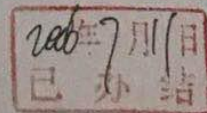 2006年7月11日
已办结